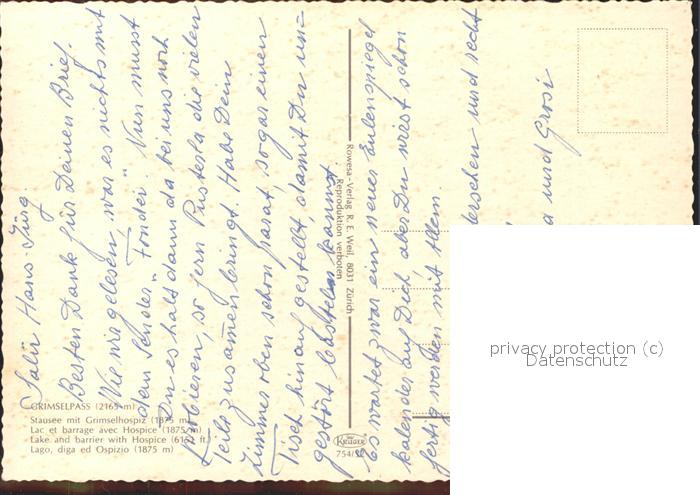 Salü Hans-Jürg.
Besten Dank für Deinen Brief.
Wie wir gelesen, war es nichts mit
dem Sender "Fonder". Nun musst
Du es halt dann da bei uns noch
probieren, so fern Du die vielen
Teile zusammenbringt. Habe Dein
Zimmer oben schon parat, sogar einen
Tisch hinauf gestellt, damit Du un=
gestört basteln kannst.
Es wartet zwar ein neuer Eulenspiegel
kalender auf Dich aber Du wirst schon
fertig werden mit Allem.
und recht
und Grosi
GRIMSELPASS (2165 m)
Stausee mit Grimselhospiz (1875 m)
Lac et barrage avec Hospice (1875 m)
Lake and barrier with Hospice (6152 ft.)
Lago, diga ed Ospizio (1875 m)
Rowesa-Verlag R. E. Weil, 8031 Zürich
Reproduktion verboten
KRÜGER
privacy protection (c)
Datenschutz